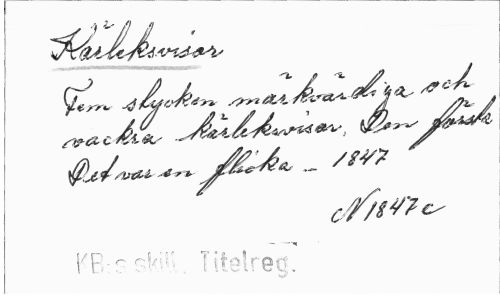 Kärleksvisor
Fem stycken märkvärdiga och
vackra kärleksvisor. Den första
Det var en flicka - 1847
N 1847 c
KB:s skill. Titelreg.